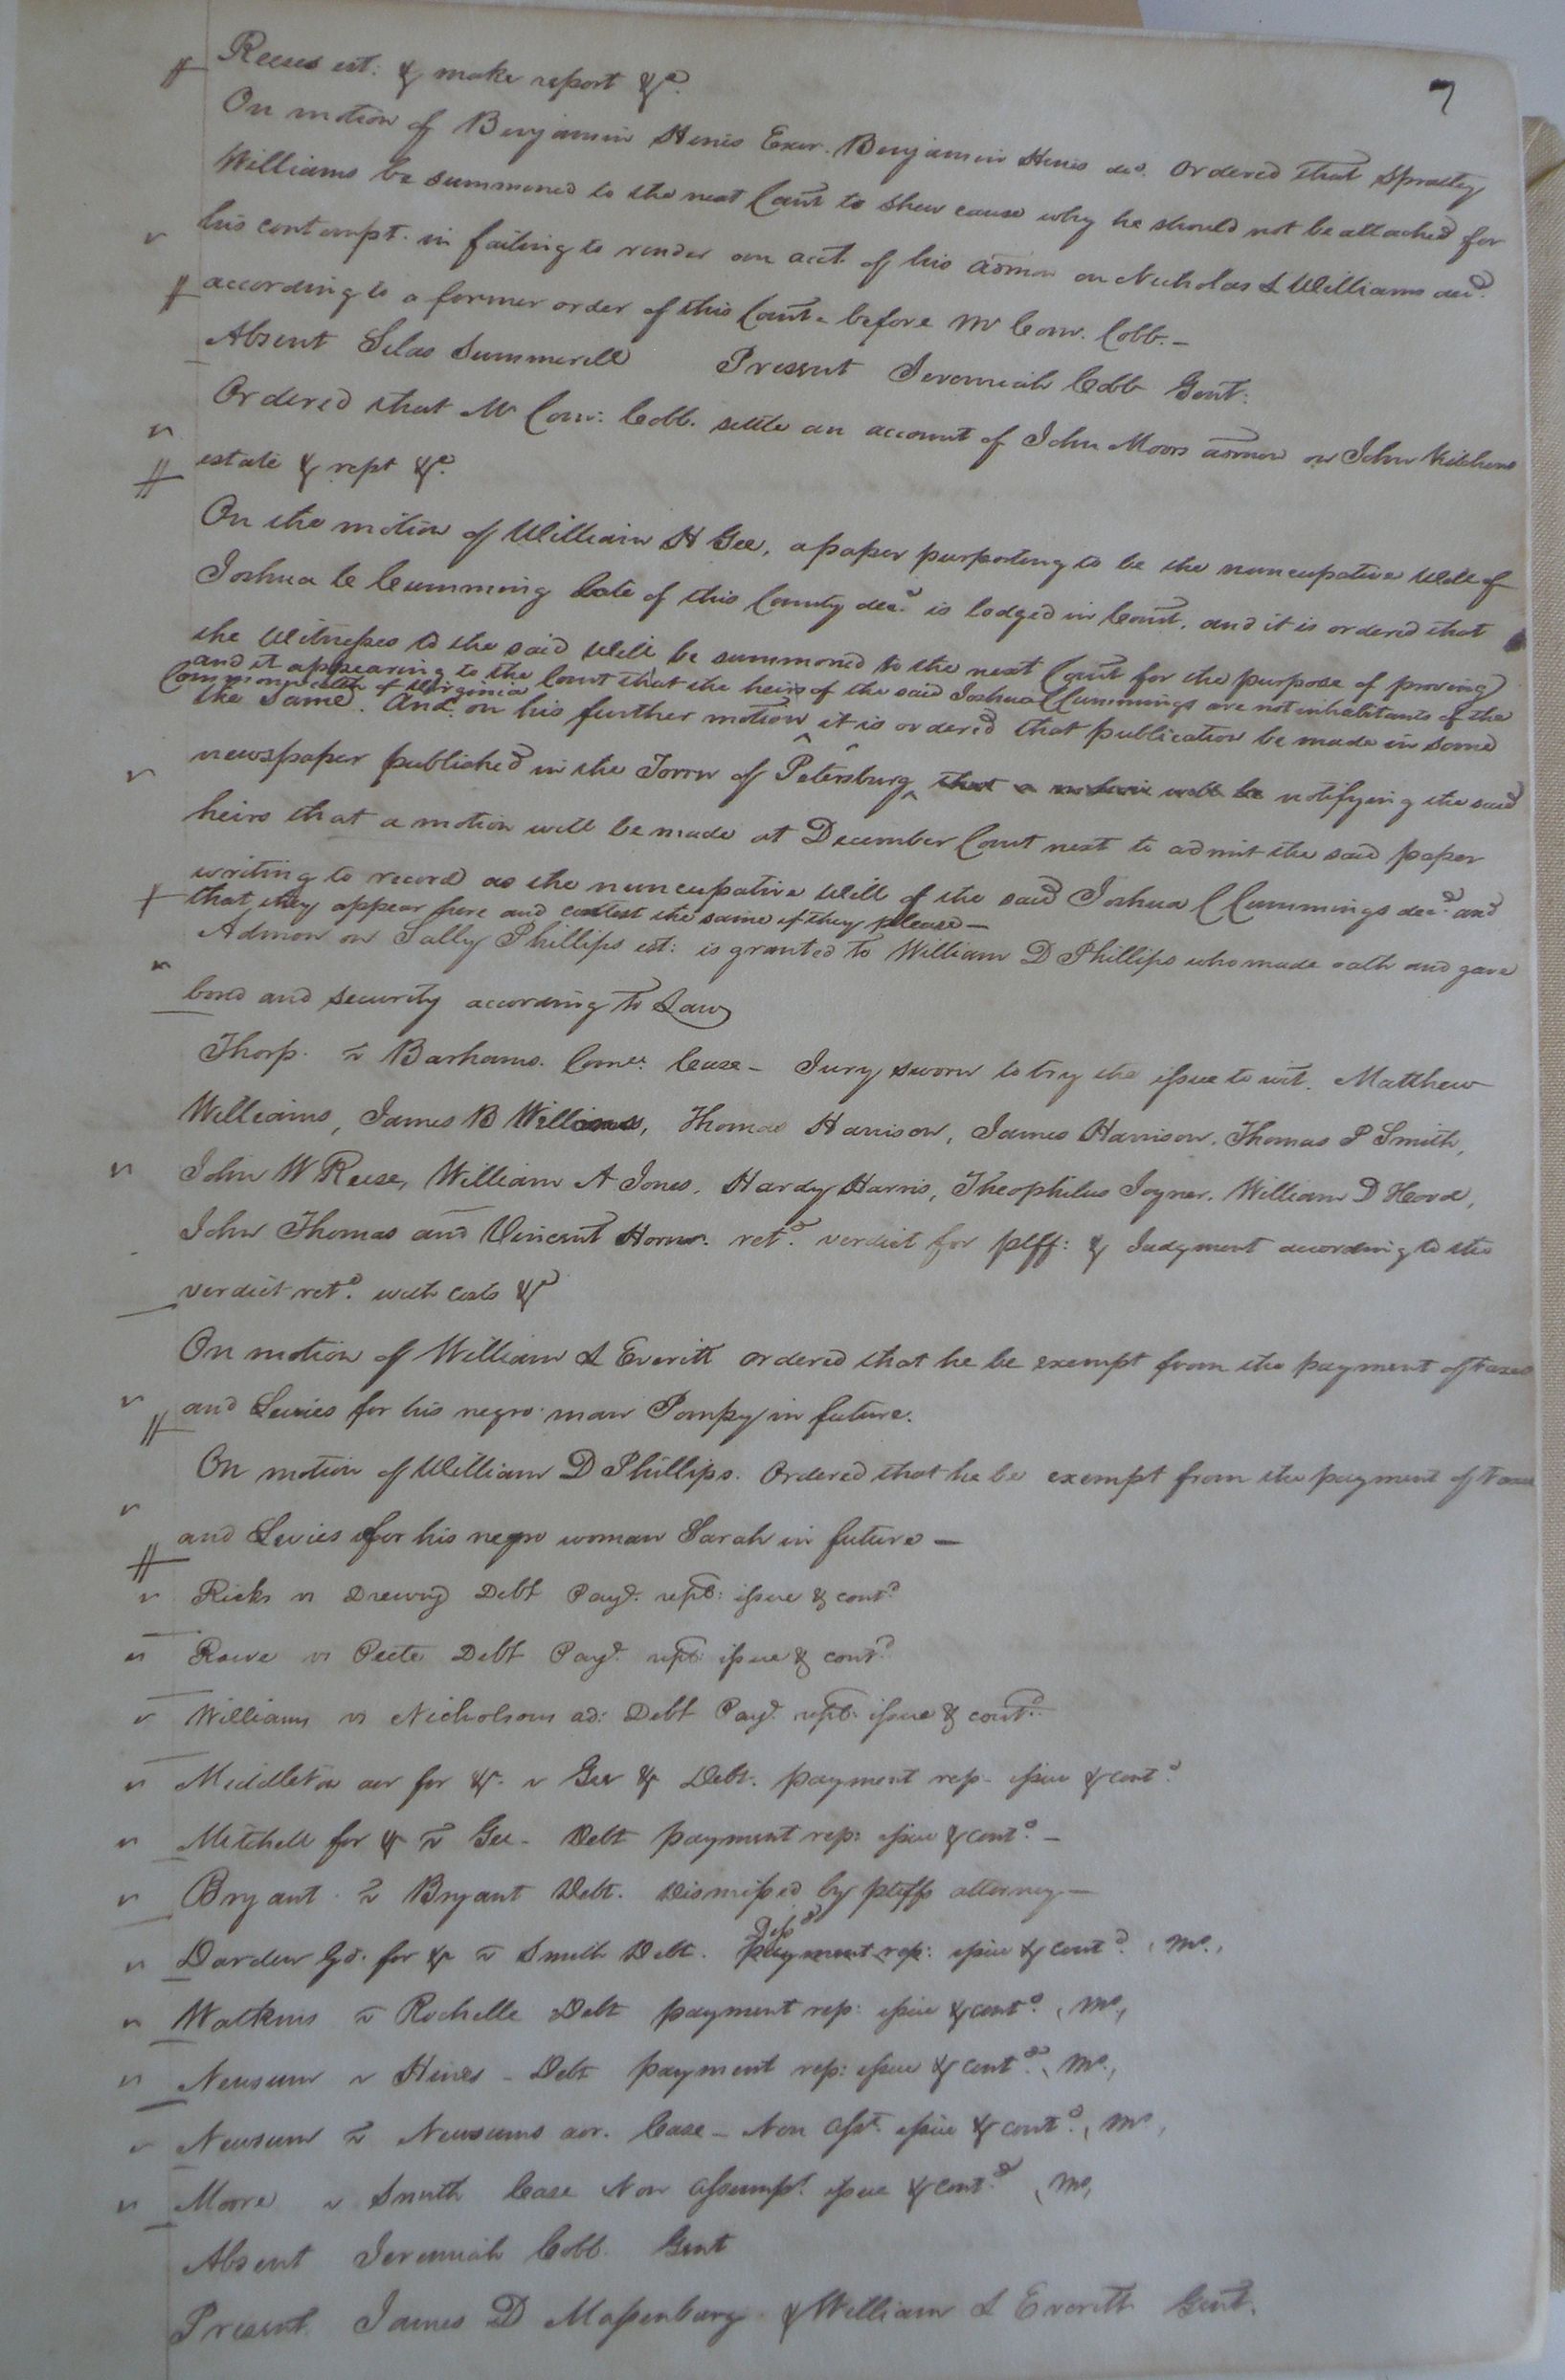 7
Reeses est: & make report &c.
On motion of Benjamin Hines Exor. Benjamin Hines decd. Ordered that Spratley
Williams be summoned to the next Court to shew cause why he should not be attached for
his contempt in failing to render an acct. of his admon on Nicholas L Williams decd.
according to a former order of this Court before Mr Com. Cobb. —
Absent Silas Summerell Present Jeremiah Cobb Gent:
Ordered that Mr Com: Cobb. settle an account of John Moors admon on John Kitchens
estate & rept &c.
On the motion of William H Gee, a paper purporting to be the nuncupative Will of
Joshua C Cumming late of this County decd. is lodged in Court, and it is ordered that
the Witnesses to the said Will be summoned to the next Court for the purpose of proving
and it appearing to the Court that the heirs of the said Joshua C Cummings are not inhabitants of the
Commonwealth of Virginia
the same. And on his further motion ^ it is ordered that publication be made in some
newspaper published in the Town of Petersburg ^ that a motion will be notifying the said
heirs that a motion will be made at December Court next to admit the said paper
writing to record as the nuncupative Will of the said Joshua C Cummings decd. and
that they appear here and contest the same if they please —
Admon on Sally Phillips est: is granted to William D Phillips who made oath and gave
bond and security according to Law
Thorp. v Barhams. Case — Jury sworn to try the issue to wit. Matthew
Williams, James B Williams, Thomas Harrison, James Harrison, Thomas P Smith,
John W Reese, William A Jones, Hardy Harris, Theophilus Joyner, William D Hood,
John Thomas and Vincent Horne. retd. verdict for plff: & Judgment according to the
verdict retd. with costs &c
On motion of William L Everitt ordered that he be exempt from the payment of taxes
and Levies for his negro man Pompy in future.
On motion of William D Phillips. Ordered that he be exempt from the payment of taxes
and Levies for his negro woman Sarah in future —
Ricks vs Drewry Debt Payt. repl: issue & contd
Rowe vs Peete Debt Payt. repl: issue & contd
Williams vs Nicholsons ad: Debt Payt. repl: issue & contd.
Middleton for &c. v Gee & Debt. payment rep. issue & contd.
Mitchell for &c v Gee — Debt payment rep: issue & contd. —
Bryant v Bryant Debt. Dismissed by pltffs attorney —
Darden Gd. for &c v Smith Debt. payment rep: issue & contd. Mo.
Watkins v Rochelle Debt payment rep: issue & contd. Mo,
Newsum v Hines — Debt payment rep: issue & contd. Mo.,
Newsum v Newsums Case — Non Asst. issue & contd. Mo,
Moore v Smith Case Non Assumpt. issue & contd. Mo,
Absent Jeremiah Cobb Gent
Present James D Massenburg & William L Everitt Gent.